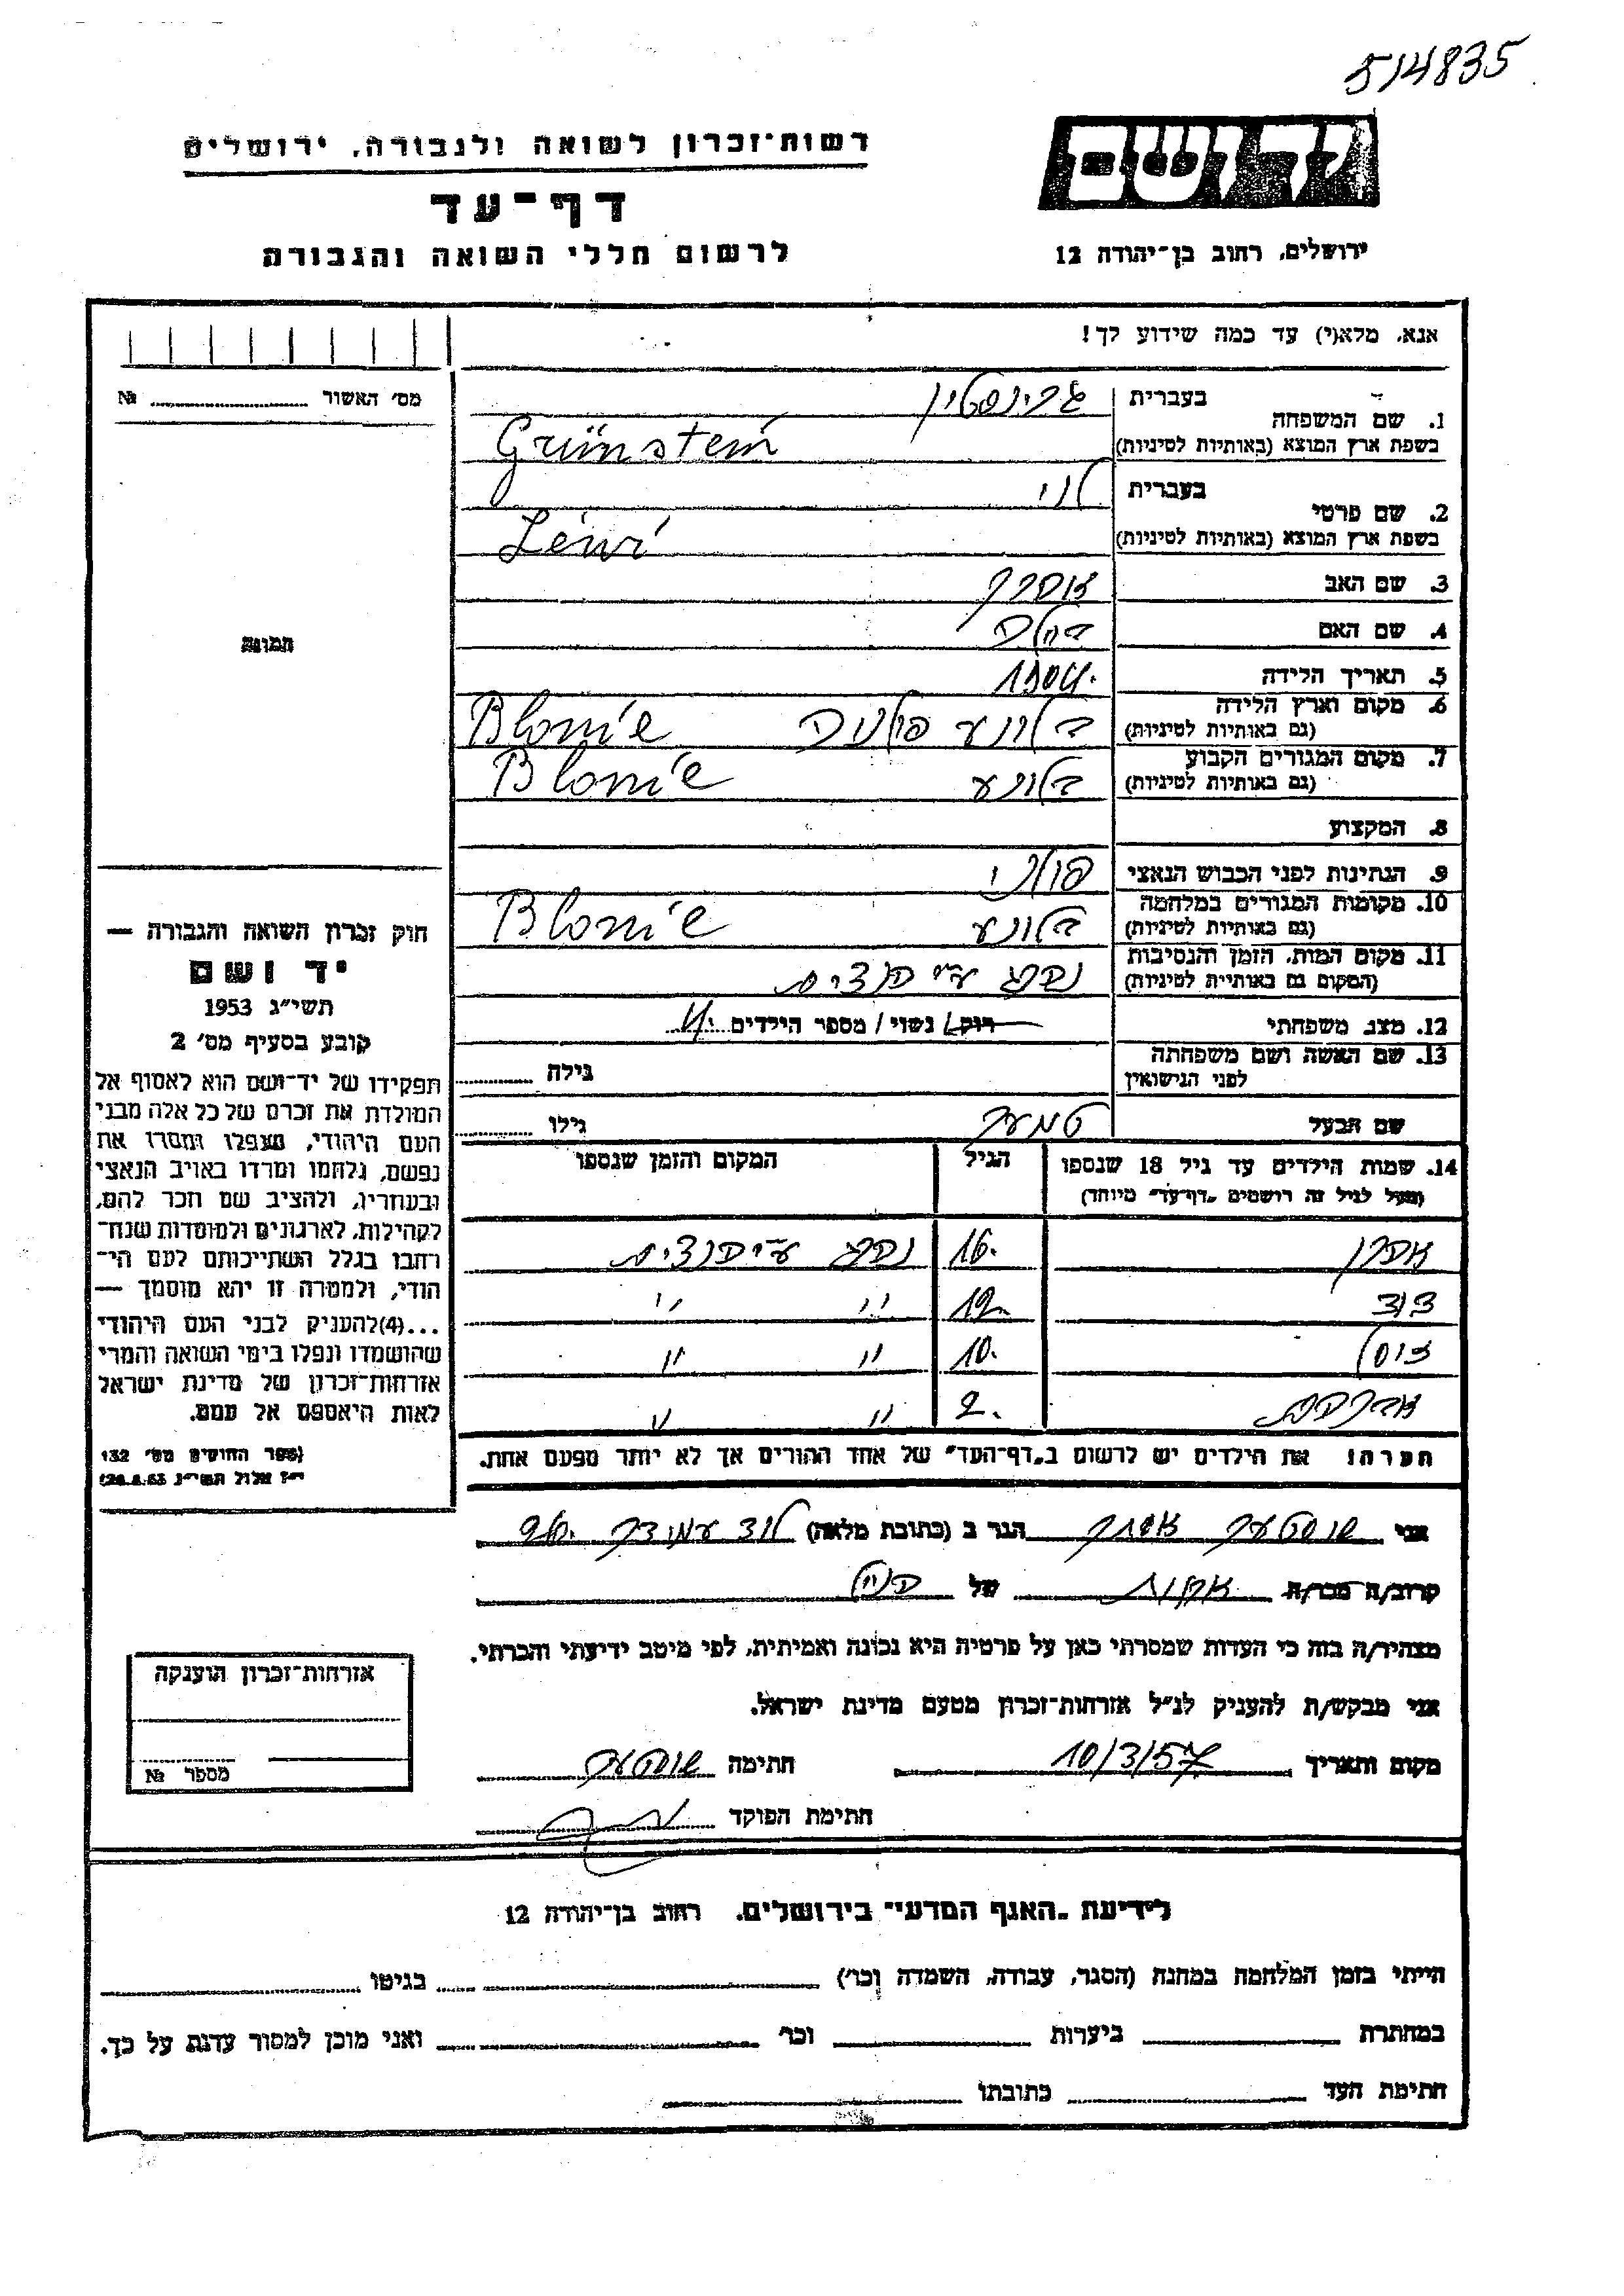 514835
יד ושם
רשות־זכרון לשואה ולגבורה, ירושלים
דף־עד
ירושלים, רחוב בן־יהודה 12
לרשום חללי השואה והגבורה
אנא, מלא(י) עד כמה שידוע לך!
מס׳ האשור № 
1. שם המשפחה
בעברית גרינסטין
בשפת ארץ המוצא (באותיות לטיניות) Grünstein
2. שם פרטי
בעברית לני
בשפת ארץ המוצא (באותיות לטיניות) Leni
3. שם האב
4. שם האם
5. תאריך הלידה 1904
6. מקום וארץ הלידה
(גם באותיות לטיניות) בלוניע פולניה Blonie
7. מקום המגורים הקבוע
(גם באותיות לטיניות) בלוניע Blonie
8. המקצוע
9. הנתינות לפני הכבוש הנאצי פולני
10. מקומות המגורים במלחמה
(גם באותיות לטיניות) בלוניע Blonie
11. מקום המות, הזמן והנסיבות
(המקום גם באותיות לטיניות) נהרג ע״י הנצים
12. מצב משפחתי רוק/ נשוי/ מספר הילדים 4.
13. שם האשה ושם משפחתה
לפני הנישואין גילה
שם הבעל גילו
תמונה
14. שמות הילדים עד גיל 18 שנספו הגיל המקום והזמן שנספו
(מעל לגיל זה רושמים ״דף־עד״ מיוחד)
אהרן 16. נהרג ע״י הנצים
דוד 12. ״ ״
10. ״ ״
2. ״ ״
הערה: את הילדים יש לרשום ב״דף־העד״ של אחד ההורים אך לא יותר מפעם אחת.
חוק זכרון השואה והגבורה —
יד ושם
תשי״ג 1953
קובע בסעיף מס׳ 2
תפקידו של יד־ושם הוא לאסוף אל
המולדת את זכרם של כל אלה מבני
העם היהודי, שנפלו ומסרו את
נפשם, נלחמו ומרדו באויב הנאצי
ובעוזריו, ולהציב שם וזכר להם,
לקהילות, לארגונים ולמוסדות שנח־
רבו בגלל השתייכותם לעם הי־
הודי, ולמטרה זו יהא מוסמך —
...(4)להעניק לבני העם היהודי
שהושמדו ונפלו בימי השואה והמרי
אזרחות־זכרון של מדינת ישראל
לאות היאספם אל עמם.
(ספר החוקים מס׳ 132
י״ז אלול תשי״ג 28.8.53)
אני הגר ב (כתובת מלאה) לוד
קרוב/ה מכר/ה אחות של
מצהיר/ה בזה כי העדות שמסרתי כאן על פרטיה היא נכונה ואמיתית, לפי מיטב ידיעתי והכרתי.
אני מבקש/ת להעניק לנ״ל אזרחות־זכרון מטעם מדינת ישראל.
מקום ותאריך 10/3/57 חתימה
חתימת הפוקד
אזרחות־זכרון הוענקה
מספר №
לידיעת ״האגף המדעי״ בירושלים, רחוב בן־יהודה 12
הייתי בזמן המלחמה במחנה (הסגר, עבודה, השמדה וכר׳) בגיטו
במחתרת ביערות וכר׳ ואני מוכן למסור עדות על כך.
חתימת העד כתובתו